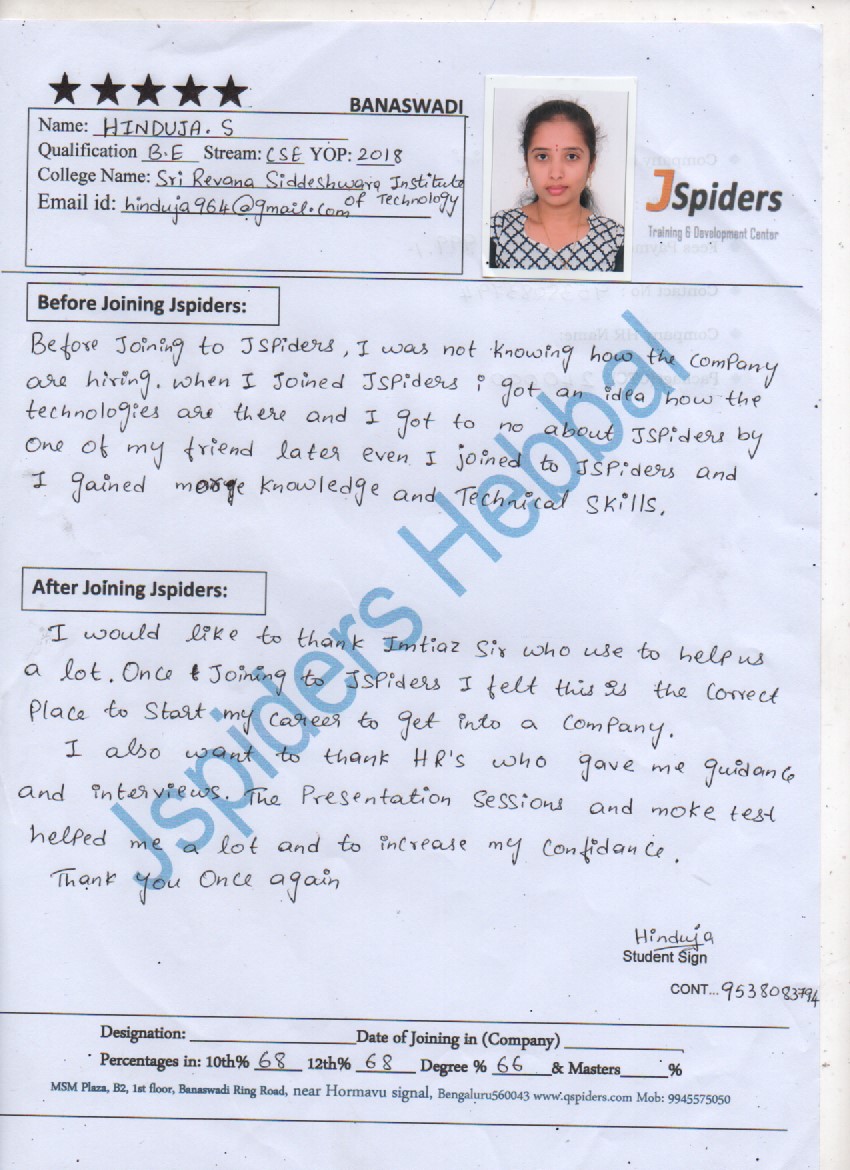 ★★★★★
BANASWADI
Name: HINDUJA. S
Qualification B.E Stream: CSE YOP: 2018
College Name: Sri Revana Siddeshwara Institute
of Technology
Email id: hinduja964@gmail.com
JSpiders
Training & Development Center
Before Joining Jspiders:
Before Joining to JSPiders, I was not knowing how the company
are hiring. when I Joined JSPiders i got an idea how the
technologies are there and I got to no about JSPiders by
One of my friend later even I joined to JSPiders and
I gained more knowledge and Technical Skills.
After Joining Jspiders:
I would like to thank Imtiaz Sir who use to help us
a lot. Once Joining to JSPiders I felt this is the correct
Place to Start my career to get into a company.
I also want to thank HR's who gave me guidance
and interviews. The Presentation Sessions and moke test
helped me a lot and to increase my confidance.
Thank you Once again
Jspiders Hebbal
Hinduja
Student Sign
CONT...9538083794
Designation: Date of Joining in (Company)
Percentages in: 10th% 68 12th% 68 Degree % 66 & Masters %
MSM Plaza, B2, 1st floor, Banaswadi Ring Road, near Hormavu signal, Bengaluru560043 www.qspiders.com Mob: 9945575050